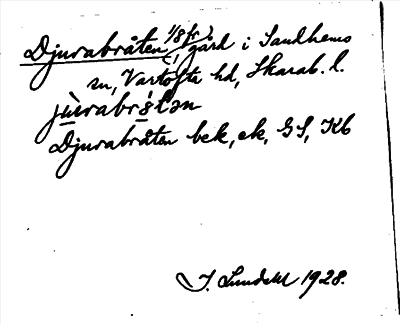 Djurabråten, 1/8 fr, gård i Sandhems
sn, Vartofta hd, Skarab. l.
jùrabrɔ́tən
Djurabråten bek, ek, GS, Kb
J. Lundahl 1928.